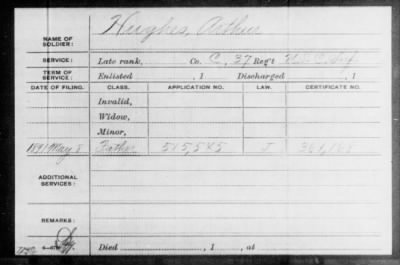 NAME OF SOLDIER: Hughes, Arthur
SERVICE: Late rank, Co. C, 37 Reg't U.S.C. Inf.
TERM OF SERVICE: Enlisted , 1 Discharged , 1
DATE OF FILING. CLASS. APPLICATION NO. LAW. CERTIFICATE NO.
Invalid,
Widow,
Minor,
1891 May 8 Father 515,545 J 361,168
ADDITIONAL SERVICES:
REMARKS:
Died , 1 , at